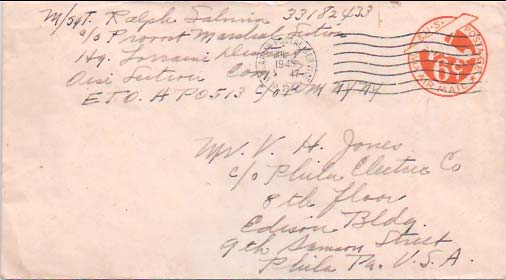 M/Sgt. Ralph Salmin 33182433
c/o Provost Marshal Section
Hq. Lorraine District
Oise Section Com
E.T.O. APO 513 c/o P.M. N.Y. N.Y.
1945
U.S. POSTAGE
6¢
VIA AIR MAIL
Mr. V. H. Jones
c/o Phila Electric Co
8th floor
Edison Bldg.
9th Sansom Street
Phila Pa. U.S.A.